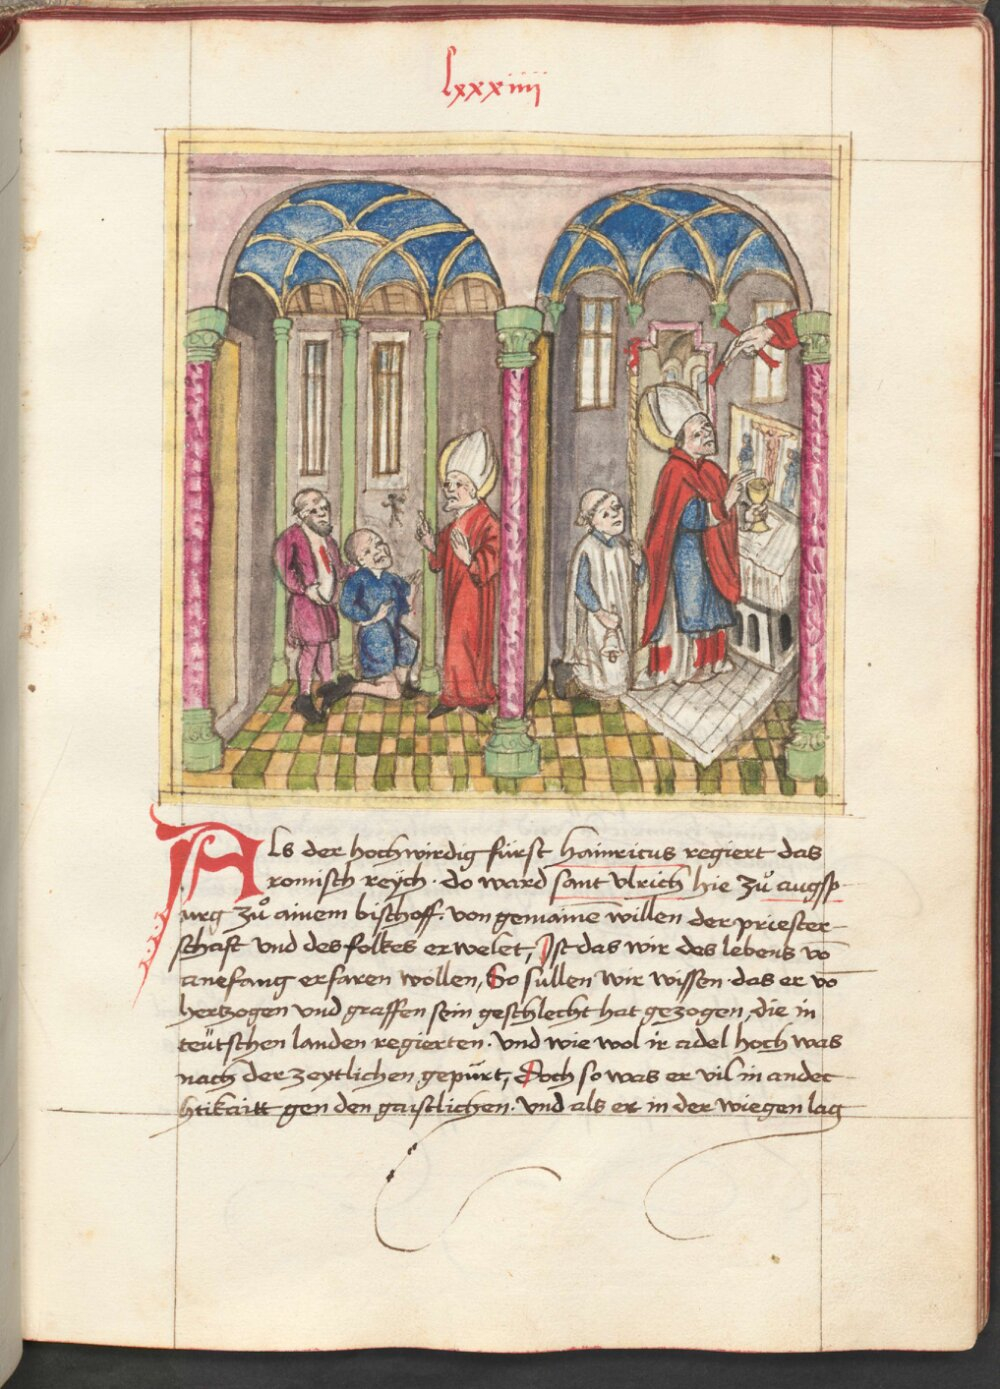 lxxxiiii
Als der hochwirdig fürst hainricus regiert das
romisch reÿch · do ward sant vlrich hie zů augsp-
urg zů ainem bischoff · von gemaine͞ willen der priester-
schaft vnd des folkes erwelet, Ist das wir des lebens vo͞
anefang erfaren wollen, So süllen wir wissen · das er vo͞
hertzogen vnd graffen sein geschlecht hat gezogen, die in
teütschen landen regierten · vnd wie wol ir adel hoch was
nach der zeytlichen gepürt, Doch so was er vil in andec-
htikaitt gen den gaistlichen · vnd als er in der wiegen lag